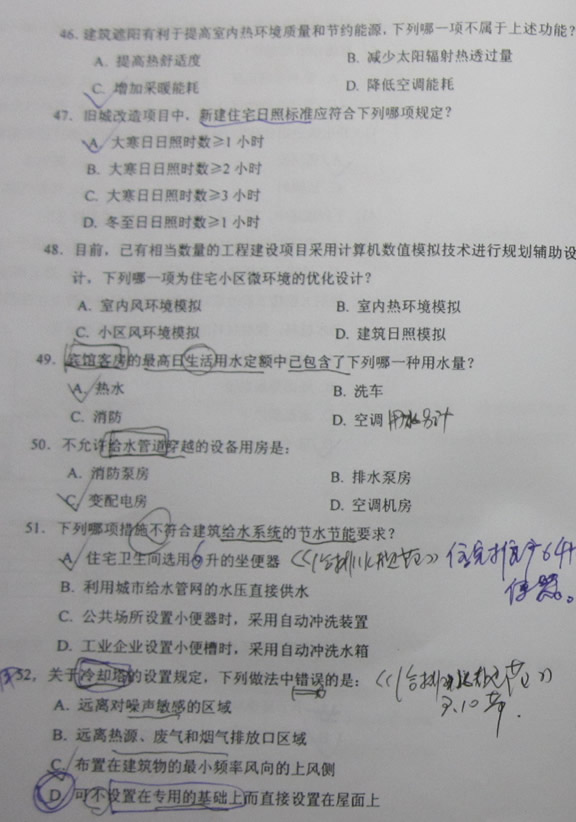 46. 建筑遮阳有利于提高室内热环境质量和节约能源，下列哪一项不属于上述功能？
A. 提高热舒适度
B. 减少太阳辐射热透过量
C. 增加采暖能耗
D. 降低空调能耗
47. 旧城改造项目中，新建住宅日照标准应符合下列哪项规定？
A. 大寒日日照时数≥1 小时
B. 大寒日日照时数≥2 小时
C. 大寒日日照时数≥3 小时
D. 冬至日日照时数≥1 小时
48. 目前，已有相当数量的工程建设项目采用计算机数值模拟技术进行规划辅助设
计，下列哪一项为住宅小区微环境的优化设计？
A. 室内风环境模拟
B. 室内热环境模拟
C. 小区风环境模拟
D. 建筑日照模拟
49. 宾馆客房的最高日生活用水定额中已包含了下列哪一种用水量？
A. 热水
B. 洗车
C. 消防
D. 空调 用水另计
50. 不允许给水管道穿越的设备用房是：
A. 消防泵房
B. 排水泵房
C. 变配电房
D. 空调机房
51. 下列哪项措施不符合建筑给水系统的节水节能要求？
A. 住宅卫生间选用9升的坐便器
B. 利用城市给水管网的水压直接供水
C. 公共场所设置小便器时，采用自动冲洗装置
D. 工业企业设置小便槽时，采用自动冲洗水箱
52. 关于冷却塔的设置规定，下列做法中错误的是：
3.10 节.
A. 远离对噪声敏感的区域
B. 远离热源、废气和烟气排放口区域
C. 布置在建筑物的最小频率风向的上风侧
D. 可不设置在专用的基础上而直接设置在屋面上